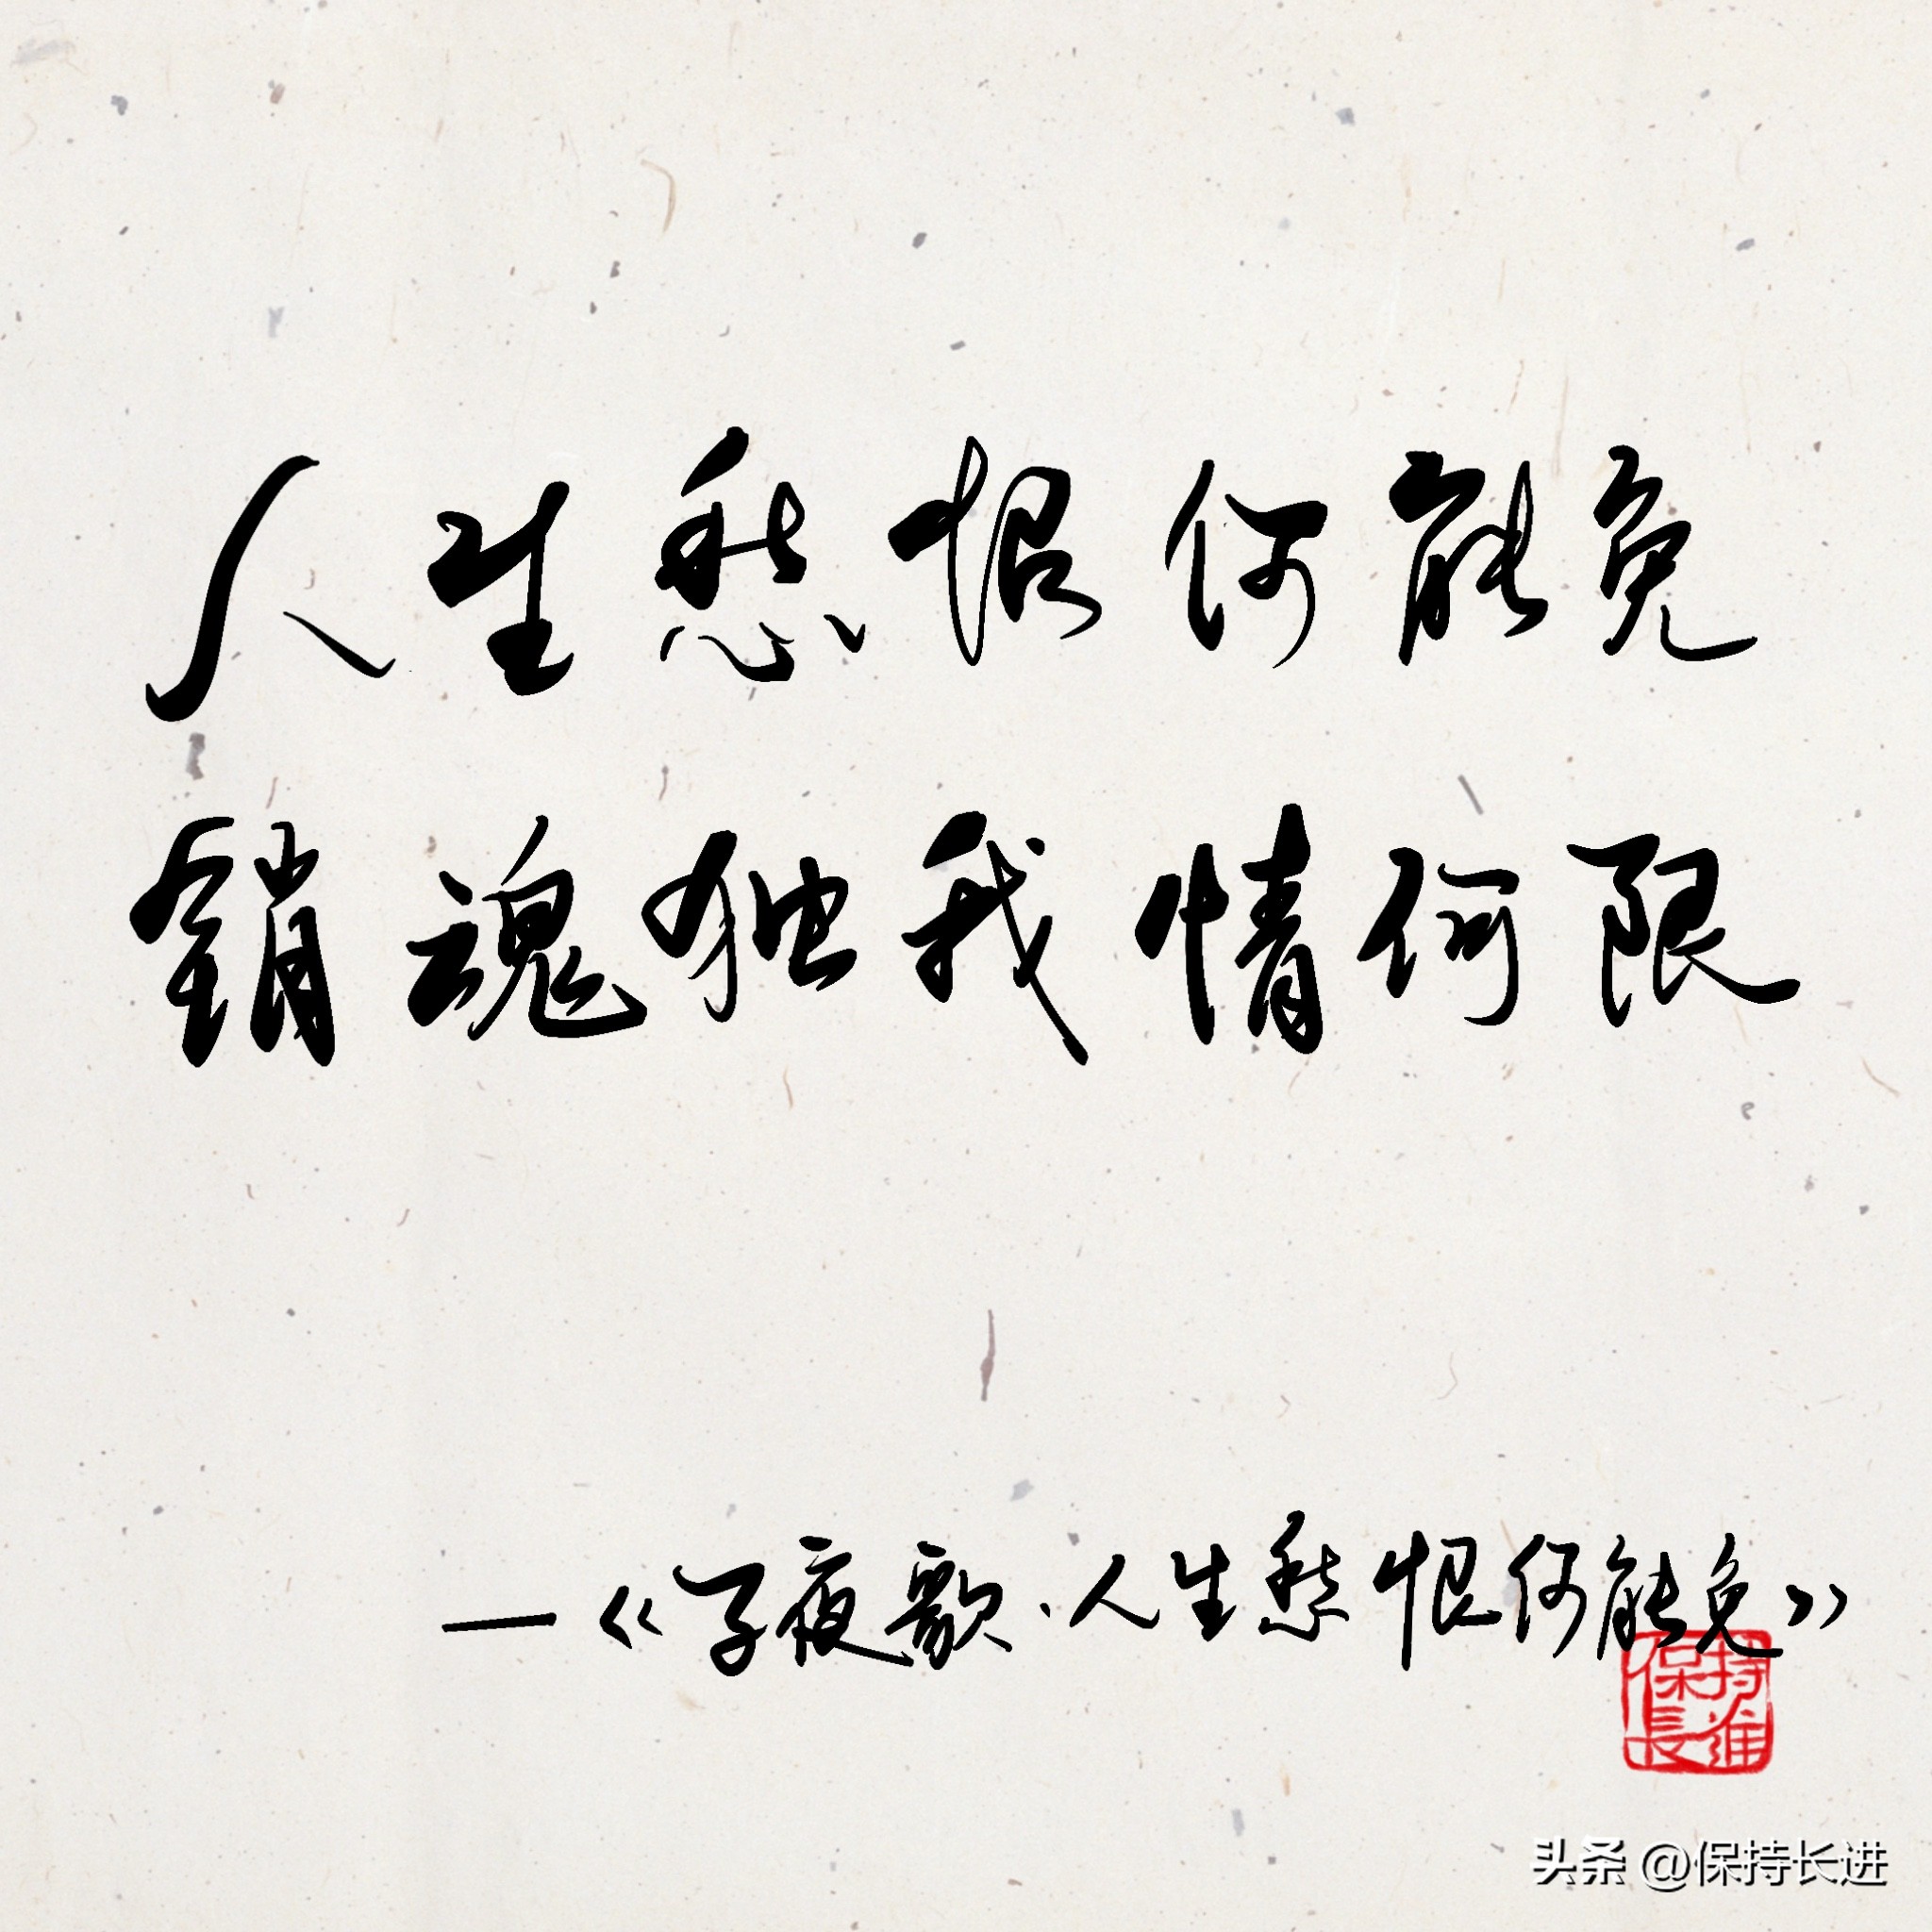 人生愁恨何能免
销魂独我情何限
—《子夜歌·人生愁恨何能免》
保持
長進
头条 @保持长进